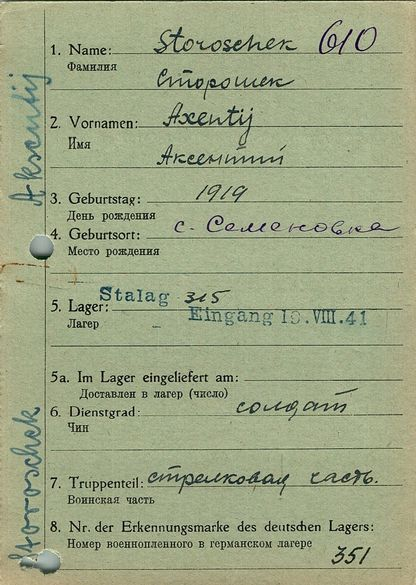 1. Name: Storoschek 610
Фамилия
Сторошек
2. Vornamen: Axentij
Имя
Аксентий
3. Geburtstag: 1919
День рождения
4. Geburtsort: с. Семеновка
Место рождения
Stalag 315
5. Lager: Eingang 19. VIII. 41
Лагер
5a. Im Lager eingeliefert am:
Доставлен в лагер (число)
6. Dienstgrad: солдат
Чин
7. Truppenteil: стрелковая часть.
Воинская часть
8. Nr. der Erkennungsmarke des deutschen Lagers:
Номер военнопленного в германском лагере
351
Storoschek Aksentij